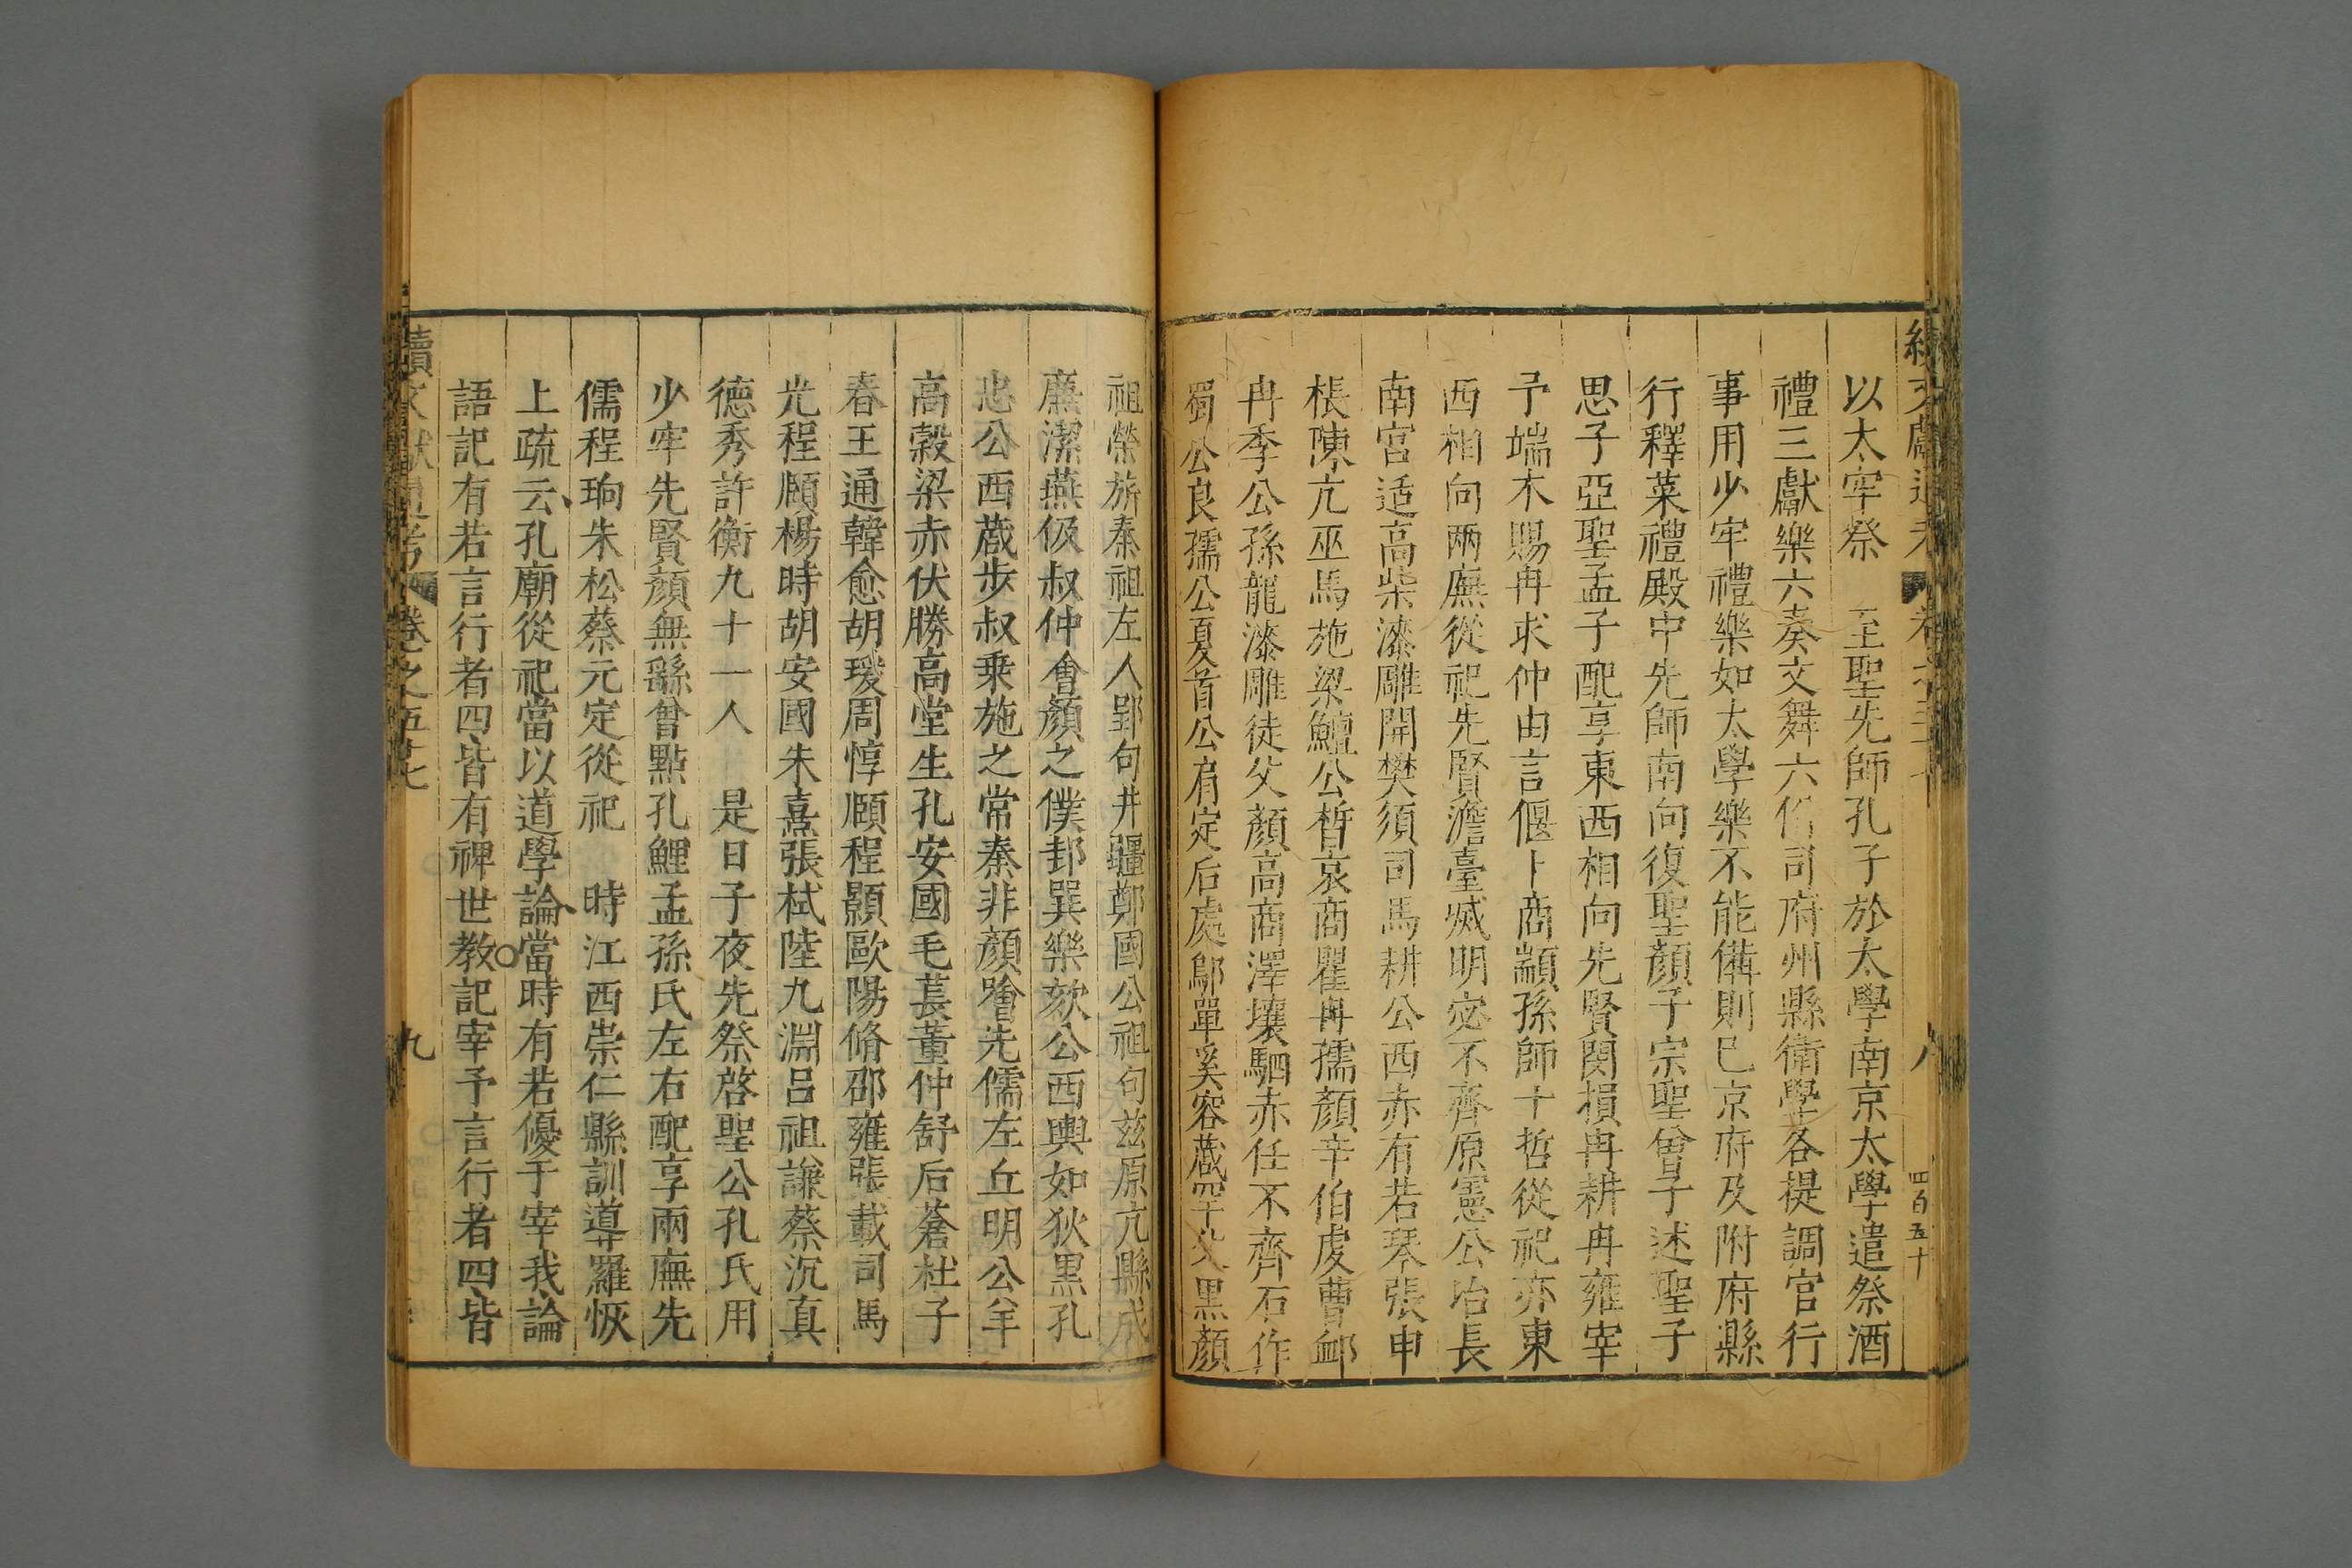 以太牢祭　至聖先師孔子於太學南京太學遣祭酒
禮三獻樂六奏文舞六佾司府州縣衛學各提調官行
事用少牢禮樂如太學樂不能備則已京府及附府縣
行釋菜禮殿中先師南向復聖顏子宗聖曾子述聖子
思子亞聖孟子配享東西相向先賢閔損冉耕冉雍宰
予端木賜冉求仲由言偃卜商顓孫師十哲從祀亦東
西相向兩廡從祀先賢澹臺滅明宓不齊原憲公冶長
南宮适高柴漆雕開樊須司馬耕公西赤有若琴張申
棖陳亢巫馬施梁鱣公晳哀商瞿冉孺顏辛伯虔曹卹
冉季公孫龍漆雕徒父顏高商澤壤駟赤任不齊石作
蜀公良孺公夏首公肩定后處鄔單奚容蒧罕父黑顏
祖榮旂秦祖左人郢句井疆鄭國公祖句兹原亢縣成
廉潔燕伋叔仲會顏之僕邽巽樂欬公西輿如狄黑孔
忠公西蒧步叔乗施之常秦非顏噲先儒左丘明公羊
高穀梁赤伏勝高堂生孔安國毛萇董仲舒后蒼杜子
春王通韓愈胡瑗周惇頤程顥歐陽脩邵雍張載司馬
光程頤楊時胡安國朱熹張栻陸九淵呂祖謙蔡沉真
德秀許衡九十一人　是日子夜先祭啓聖公孔氏用
少牢先賢顏無繇曾點孔鯉孟孫氏左右配享兩廡先
儒程珦朱松蔡元定從祀　時江西崇仁縣訓導羅恢
上疏云孔廟從祀當以道學論當時有若優于宰我論
語記有若言行者四皆有裨世教○記宰予言行者四皆
續文獻通考　卷之五十七　九
四百五十
八